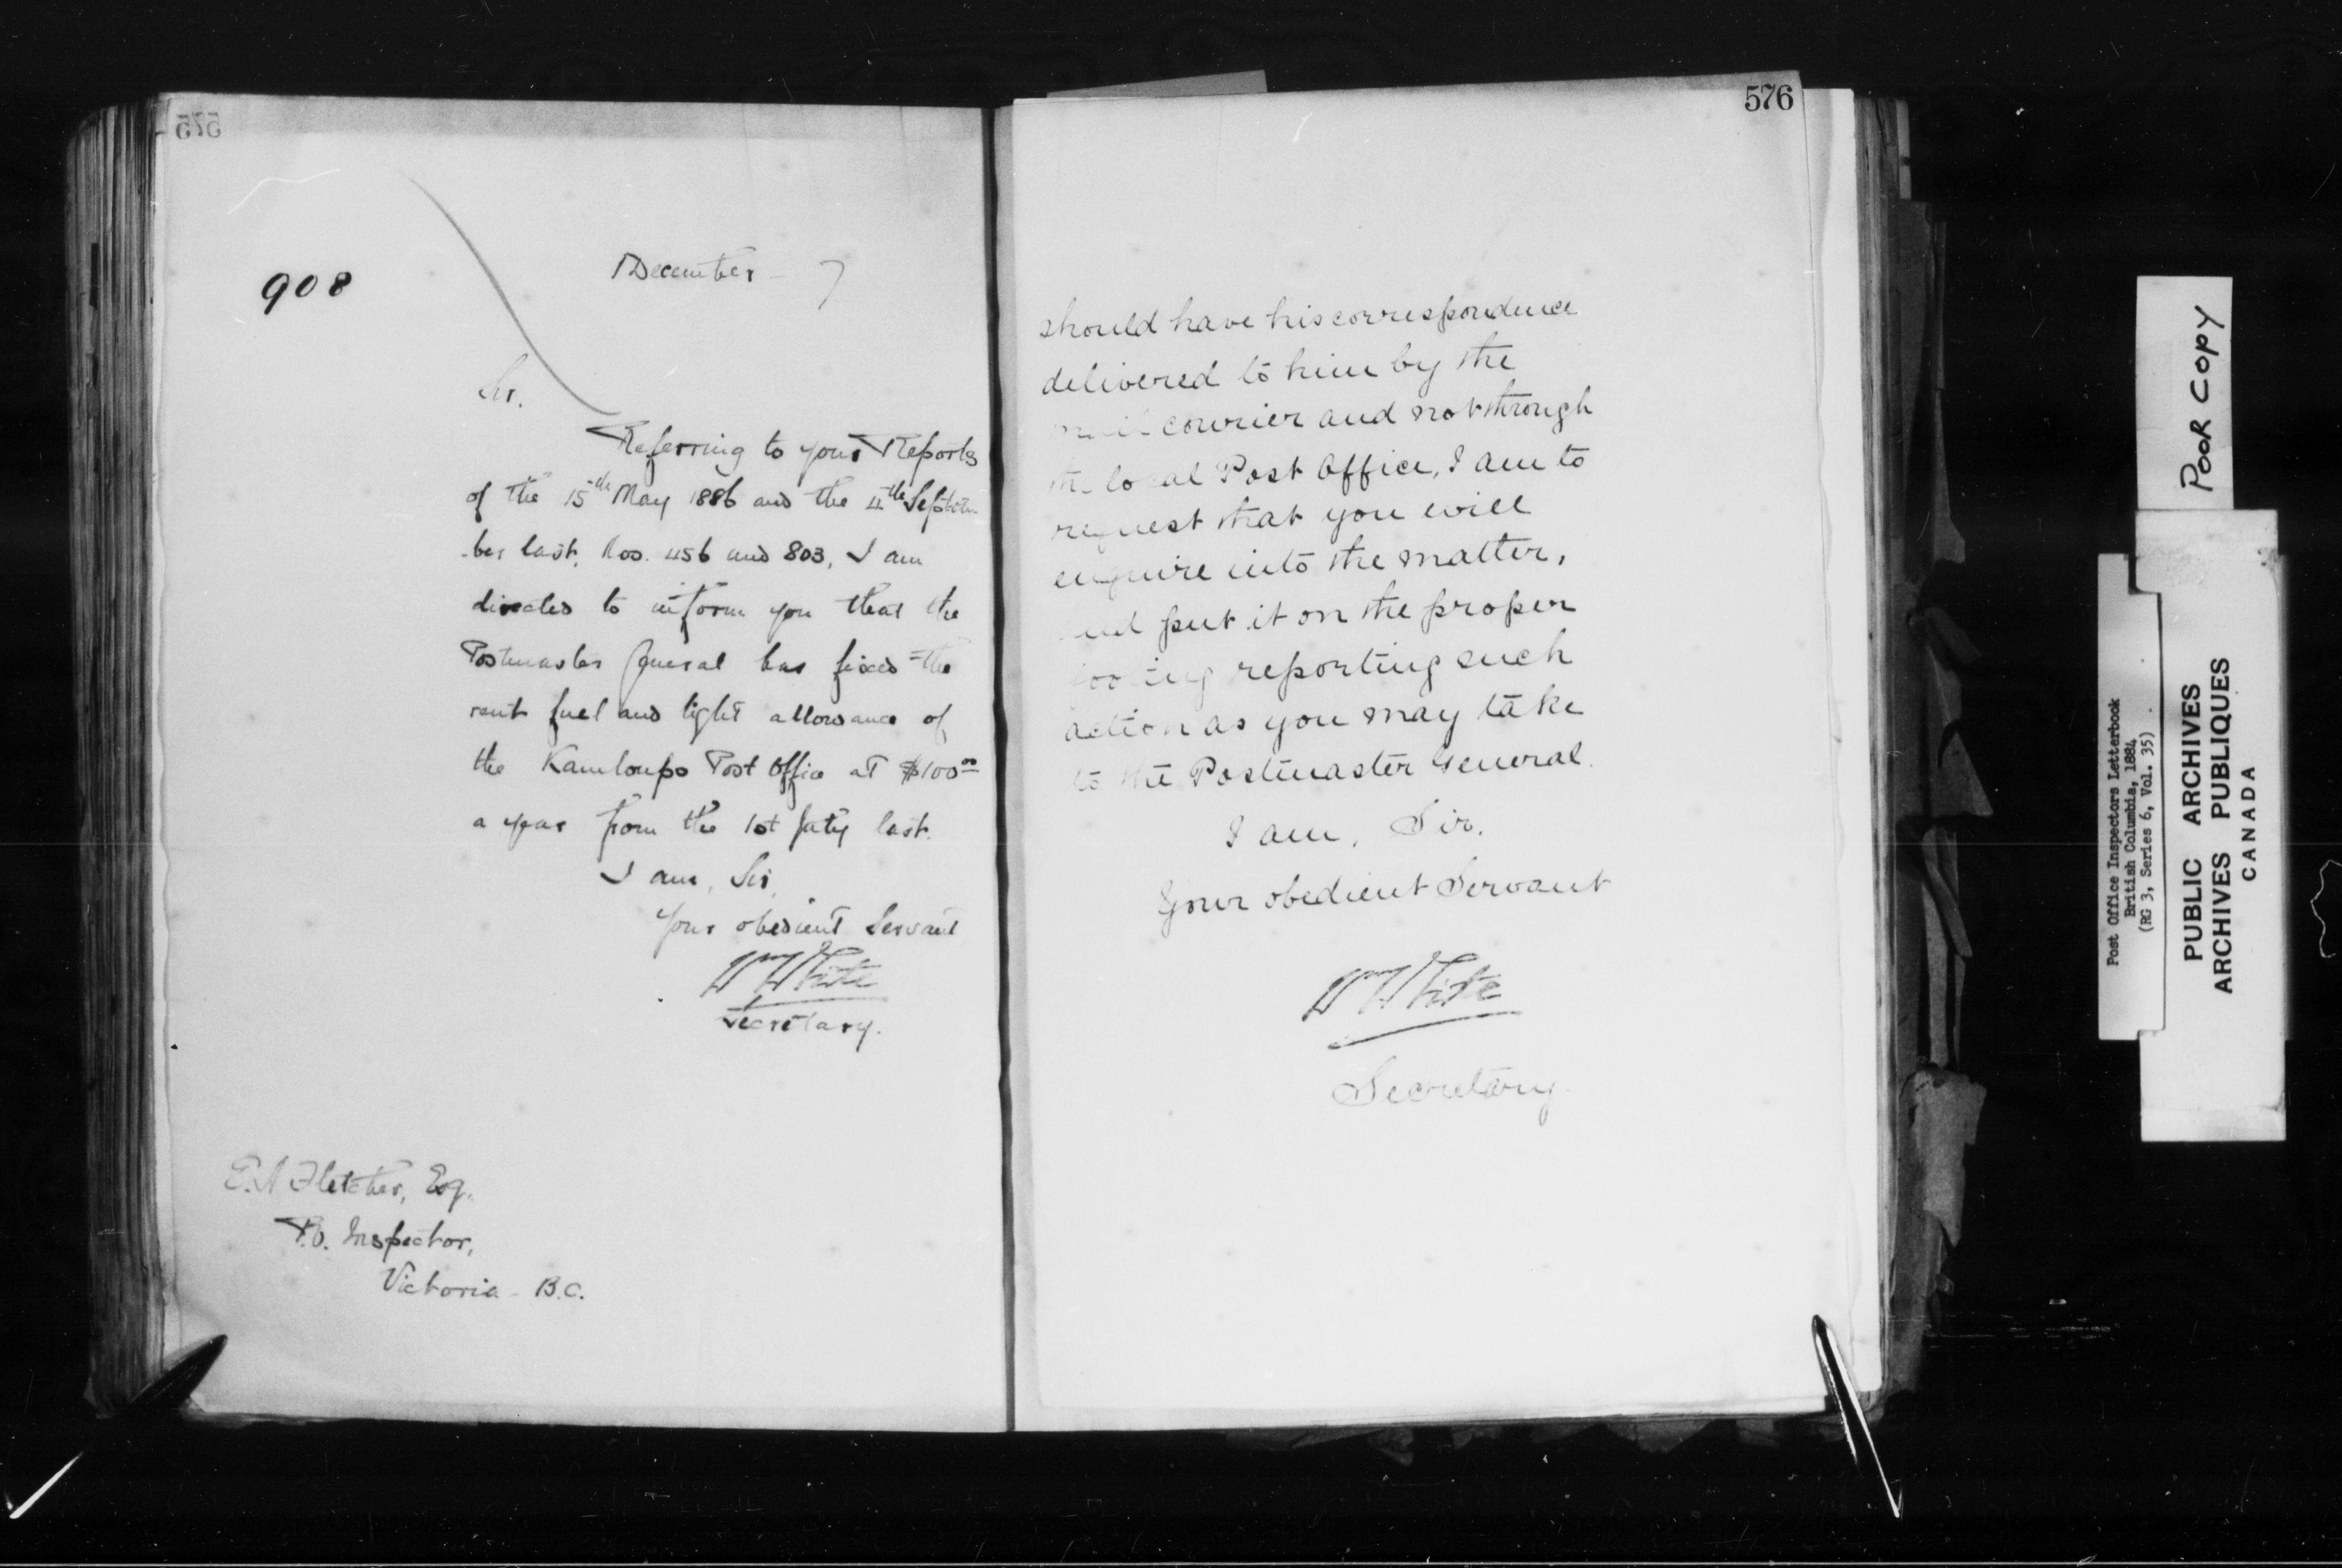 575
908
December - 7
Sir.
Referring to your Reports
of the 15th May 1886 and the 4th Septem
-ber last, Nos. 456 and 803, I am
directed to inform you that the
Postmaster General has fixed the
rent fuel and light allowance of
the Kamloops Post Office at $100.00
a year from the 1st July last.
I am, Sir,
Your obedient Servant
Wm White
Secretary.
E. A Fletcher, Esq.
P.O. Inspector,
Victoria - B.C.
576
should have his correspondence
delivered to him by the
mail courier and not through
the local Post Office, I am to
request that you will
enquire into the matter,
and put it on the proper
footing reporting such
action as you may take
to the Postmaster General.
I am, Sir,
Your obedient Servant
Wm White
Secretary.
POOR COPY
Post Office Inspectors Letterbook
British Columbia, 1884
(RG 3, Series 6, Vol. 35)
PUBLIC ARCHIVES
ARCHIVES PUBLIQUES
CANADA